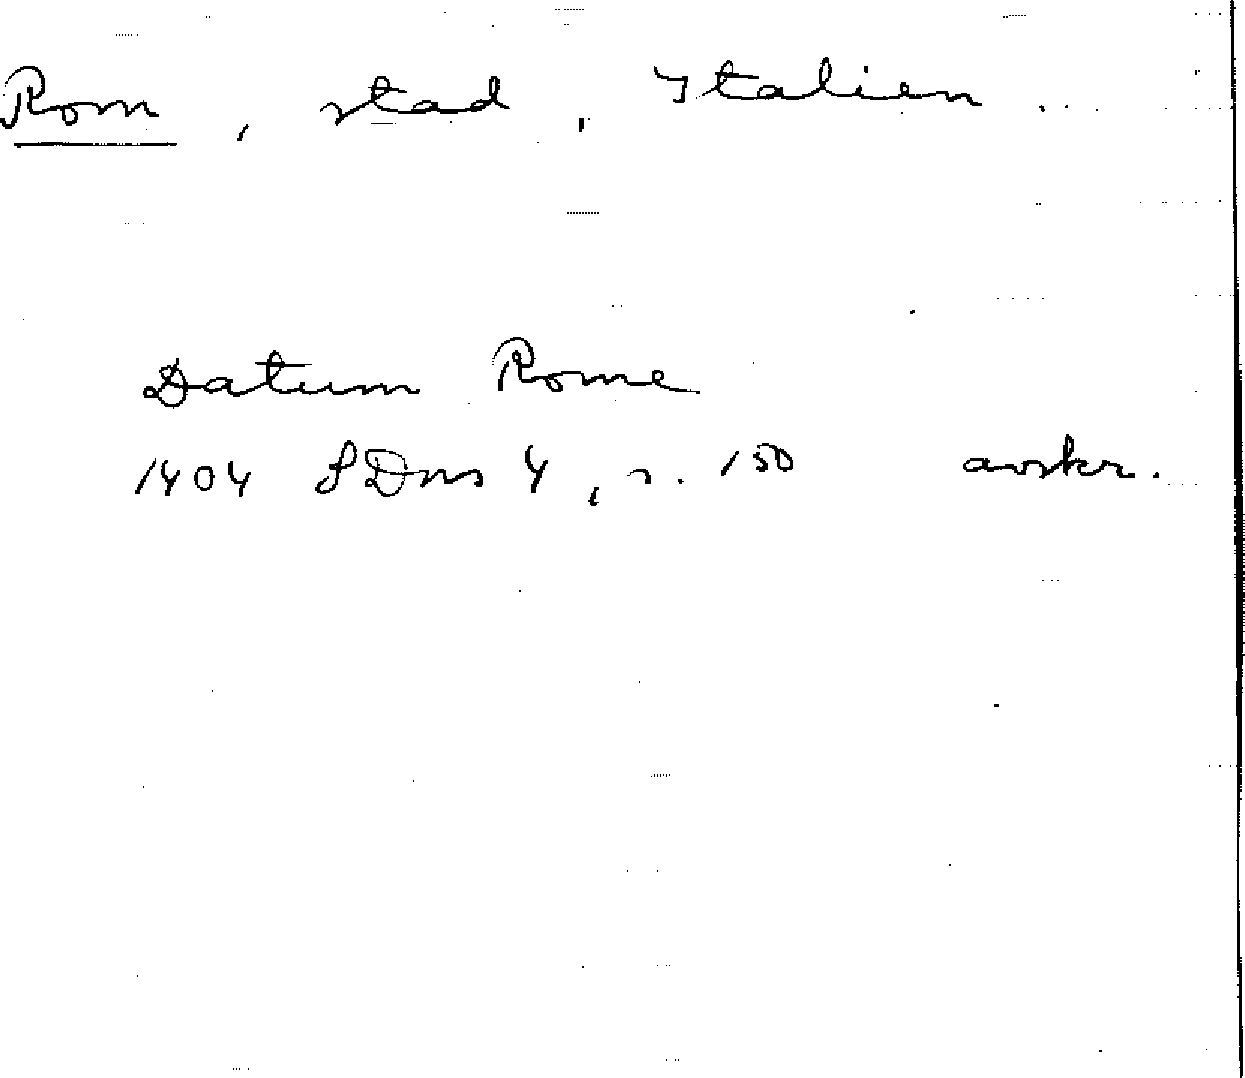 Rom, stad, Italien.
Datum Rome
1404 SDns 4, s. 150 avskr.